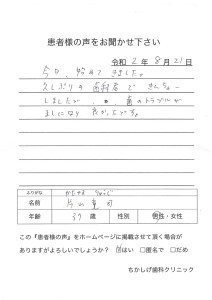 患者様の声をお聞かせ下さい
令和 2 年 8 月 21 日
今日、初めてきました。
久しぶりの歯科者できんちょー
しましたが、歯のトラブルが
ましになり良かったです。
ふりがな
名前
年齢 39 歳 性別 男性・女性
この『患者様の声』をホームページに掲載させて頂く場合が
ありますがよろしいでしょうか？ はい □匿名で □だめ
ちかしげ歯科クリニック